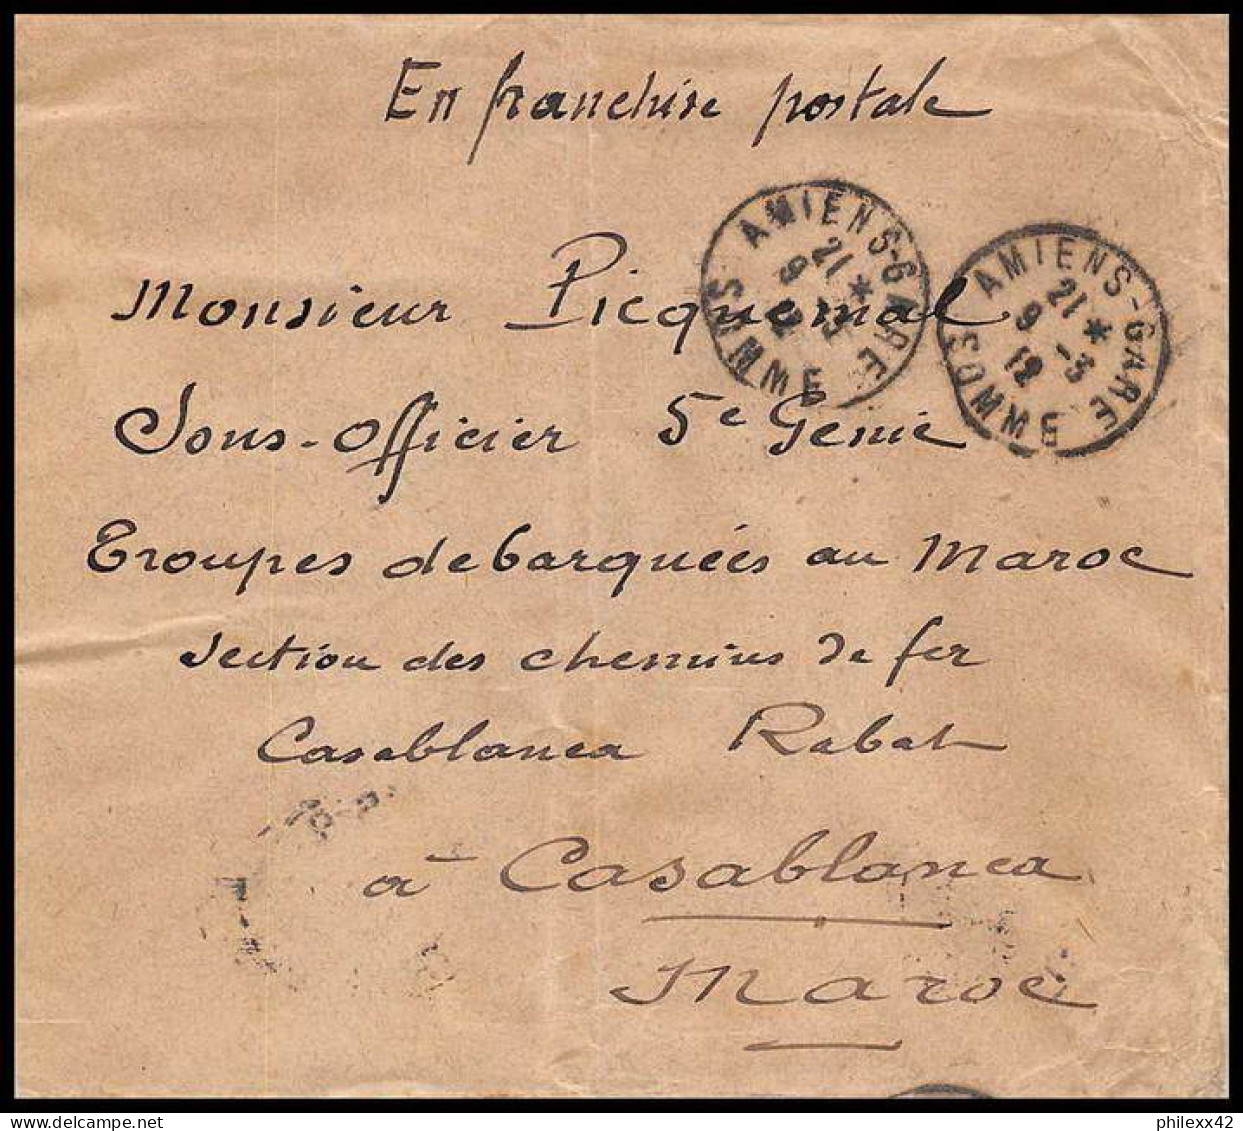 En franchise postale
AMIENS-GARE
21 *
9 -3
12
SOMME
AMIENS-GARE
21 *
9 -3
12
SOMME
Monsieur Picquemal
Sous-Officier 5e Genie
Troupes debarquées au Maroc
section des chemins de fer
Casablanca Rabat
à Casablanca
Maroc
philexx42